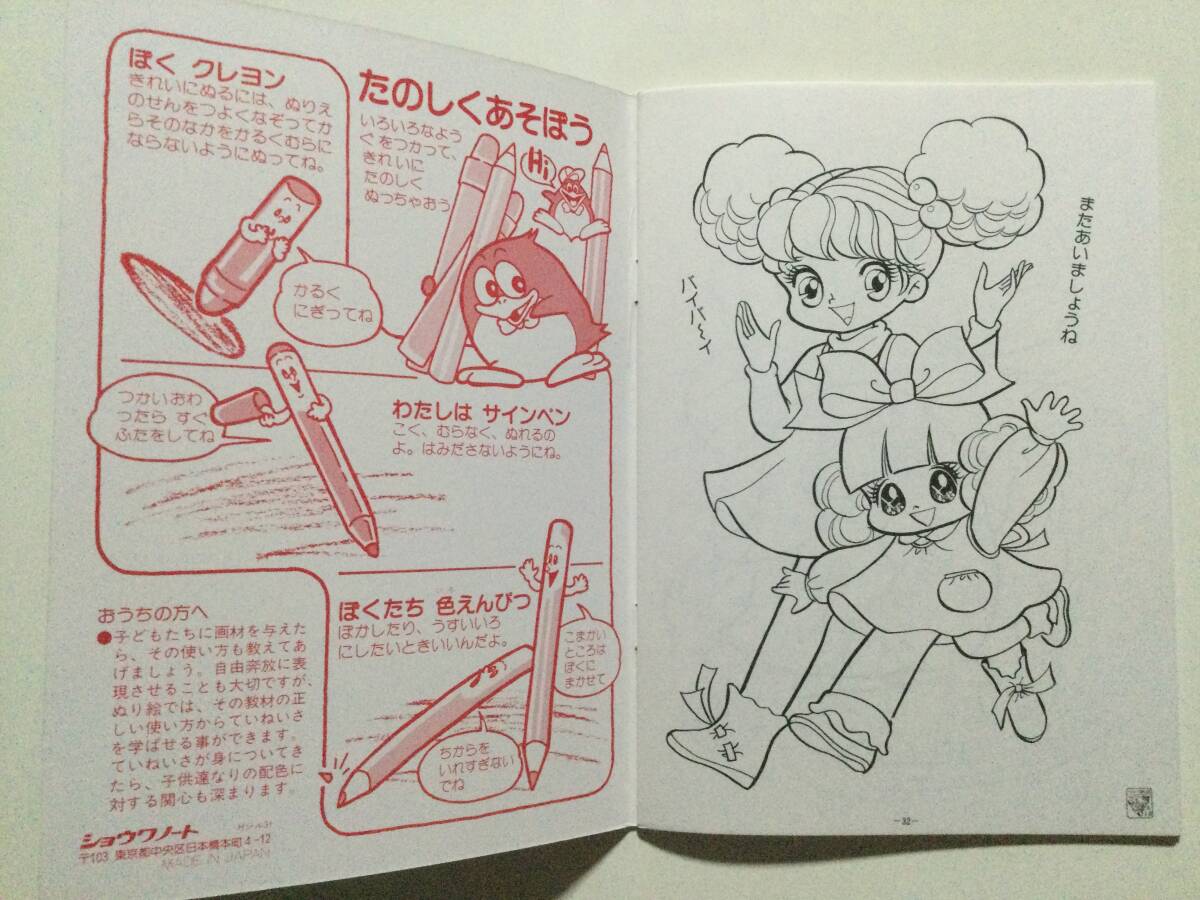 ぼく クレヨン
きれいにぬるには、ぬりえ
のせんをつよくなぞってか
らそのなかをかるくむらに
ならないようにぬってね。
かるく
にぎってね
たのしくあそぼう
いろいろなよう
ぐをつかって、
きれいに
たのしく
ぬっちゃおう
Hi
つかいおわ
ったら すぐ
ふたをしてね
わたしは サインペン
こく、むらなく、ぬれるの
よ。はみださないようにね。
ぼくたち 色えんぴつ
ぼかしたり、うすいいろ
にしたいときいいんだよ。
こまかい
ところは
ぼくに
まかせて
ちからを
いれすぎない
でね
おうちの方へ
●子どもたちに画材を与えた
ら、その使い方も教えてあ
げましょう。自由奔放に表
現させることも大切ですが、
ぬり絵では、その教材の正
しい使い方からていねいさ
を学ばせる事ができます。
ていねいさが身についてき
たら、子供達なりの配色に
対する関心も深まります。
ショウワノート
〒103 東京都中央区日本橋本町4-12
MADE IN JAPAN
またあいましょうね
バイバ〜イ
-32-